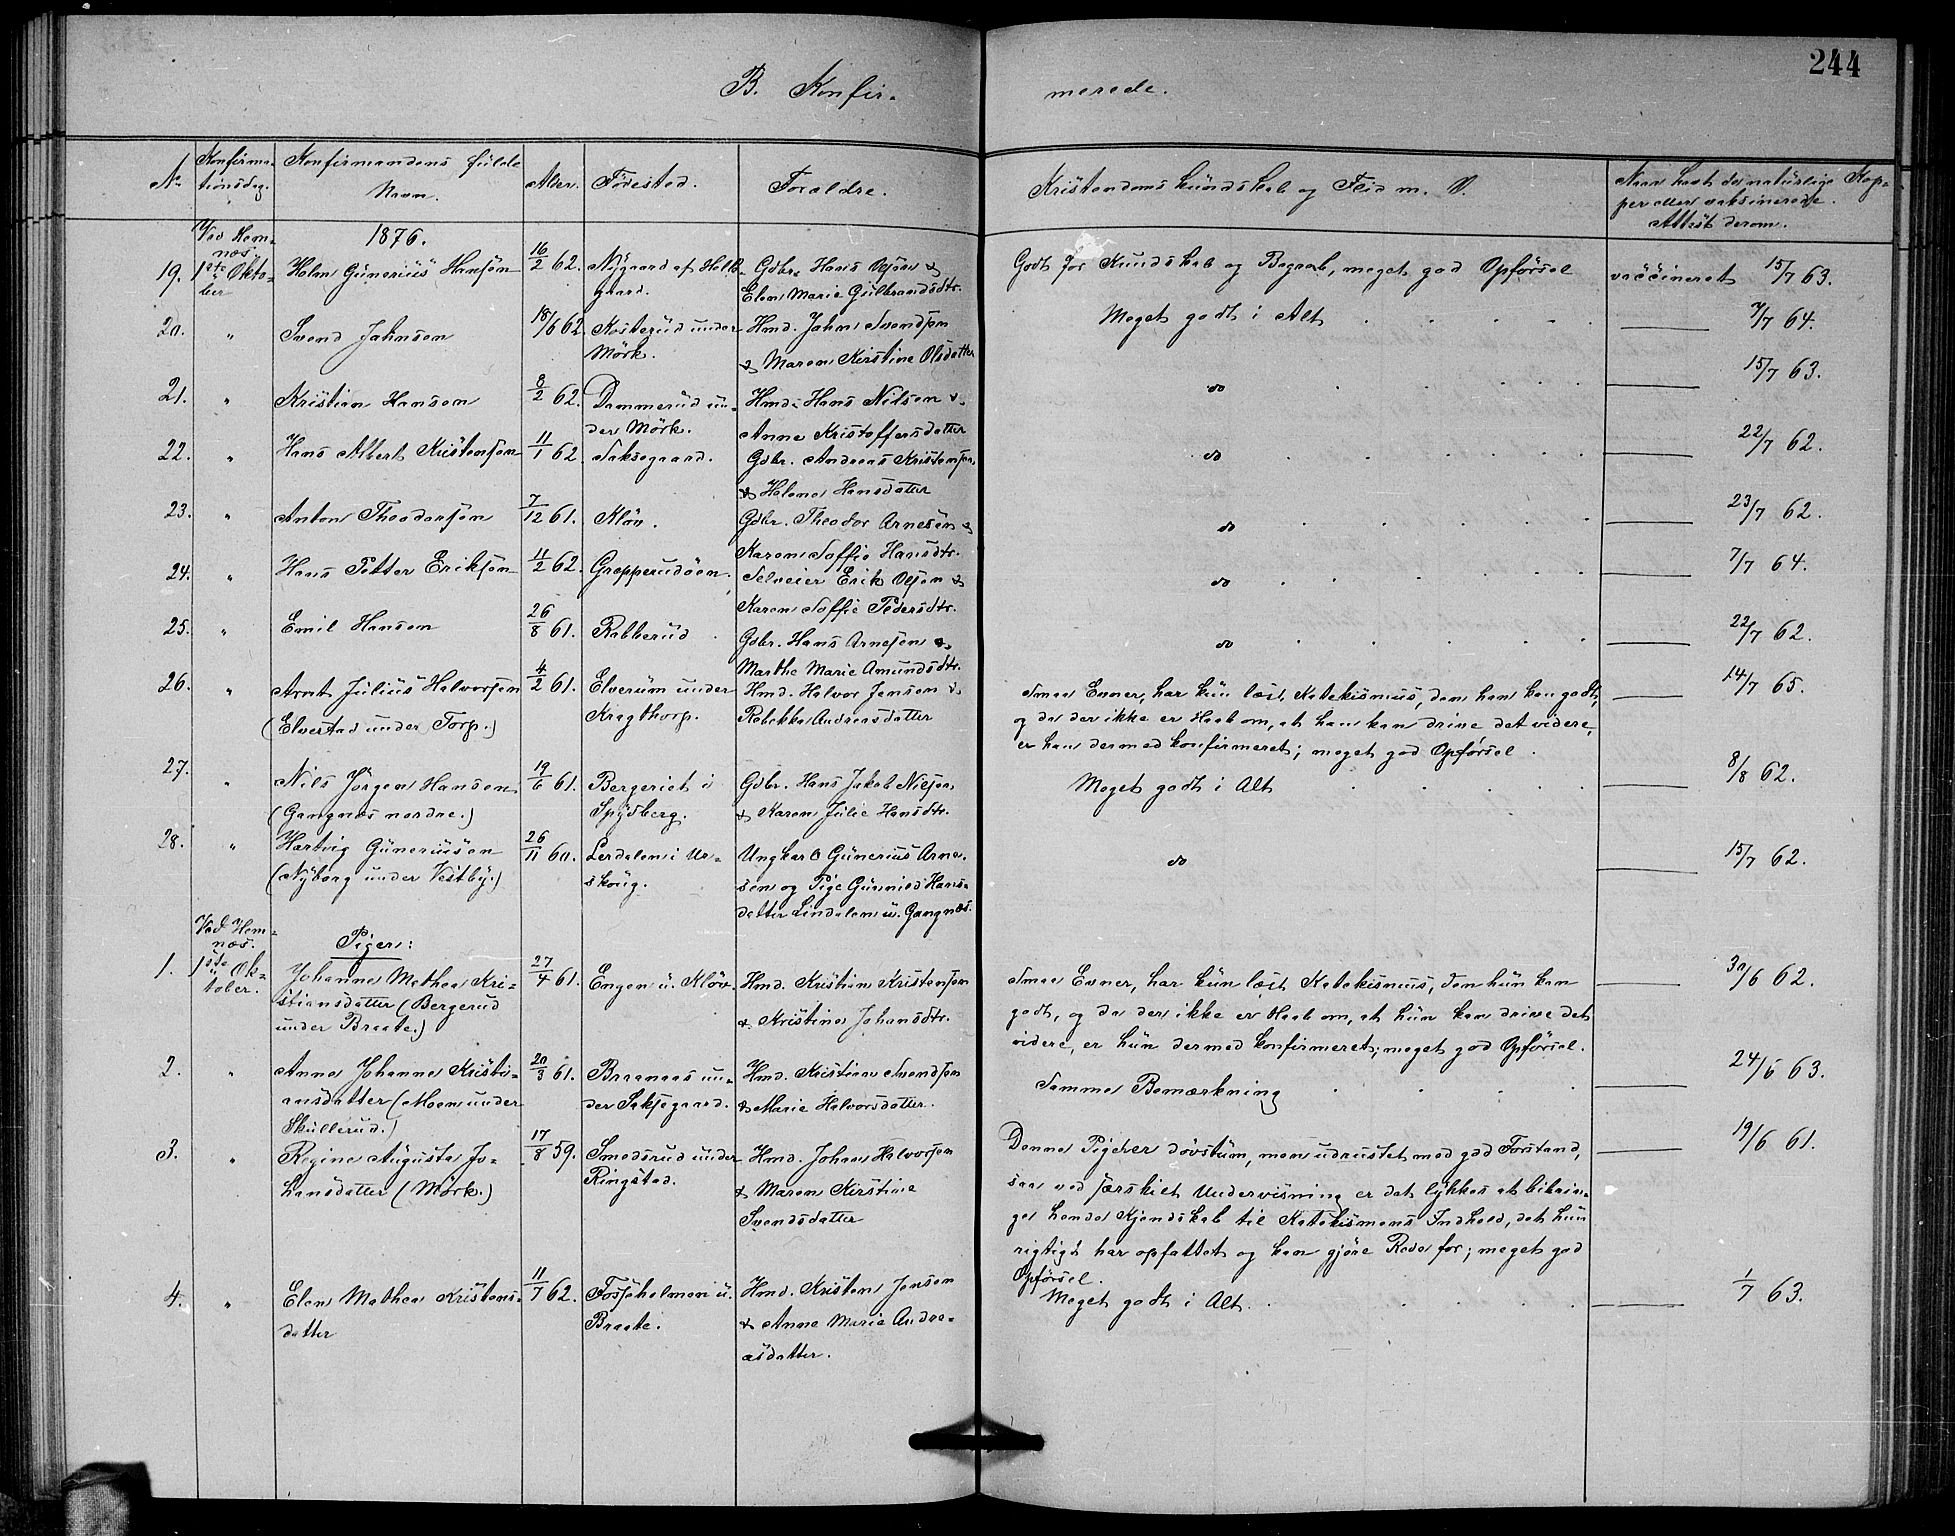 244
B. Konfir-
merede.
No
Konfirma-
tionsdag.
Konfirmandens fulde
Navn.
Alder.
Födested.
Foraldre.
Kristendomskundskab og Flid m. V.
Naar havt de naturlige Kop-
per eller vaksinerede.
Attest derom.
Ved Hem-
næs.
1876.
19. 1ste Okto-
ber
Halvor Gunerius Hansen 16/2 62. Nygaard af Hell-
gaard.
Gdbr. Hans Olsen &
Elen Marie Gulbrandsdtr.
Godt for Kundskab og Begreb, meget god Opförsel vaccineret 15/7 63.
20. " Svend Jahnsen 18/6 62 Kosterud under
Mörk.
Hmd. Jahn Svendsen
& Maren Kirstine Olsdatter
Meget godt i Alt 7/7 64.
21. " Kristian Hansen 8/2 62. Dammerud un-
der Mörk.
Hmd. Hans Nilsen &
Anne Kristoffersdatter
do 15/7 63.
22. " Hans Albert Kristensen 11/1 62. Saksegaard.
Gdbr. Andreas Kristensen
& Helene Hansdatter
do 22/7 62.
23. " Anton Theodorsen 7/12 61. Klöv.
Gdbr. Theodor Arnesen &
Karen Soffie Hansdtr.
do 23/7 62.
24. " Hans Petter Eriksen 11/2 62. Gropperudöen.
Selveier Erik Olsen &
Karen Soffie Pedersdtr.
do 7/7 64.
25. " Emil Hansen 26/8 61. Rabberud.
Gdbr. Hans Arnesen &
Marthe Marie Amundsdtr.
do 22/7 62.
26. " Arnt Julius Halvorsen
(Elvestad under Torp.)
4/2 61. Elverum under
Kragthorp.
Hmd. Halvor Jensen &
Rebekka Andreasdatter
Smaa Evner, har kun læst Katekismus, den han kan godt,
og da der ikke er Haab om, at han kan drive det videre,
er han dermed konfirmeret; meget god Opförsel.
14/7 65.
27. " Nils Jörgen Hansen
(Gangnæs nordre.)
19/6 61. Bergeriet i
Spydberg.
Gdbr. Hans Jakob Nilsen
& Karen Julie Hansdtr.
Meget godt i Alt 8/8 62.
28. " Hartvig Guneriusen
(Nyborg under Vestby.)
26/11 60. Lerdalen i Ur-
skoug.
Ungkarl Gunerius Arne-
sen og Pige Gunnild Hans-
datter Lindalen u. Gangnæs.
do 15/7 62.
Ved Hem-
næs.
Piger:
1. 1ste Ok-
tober.
Johanne Mathea Kri-
stiansdatter (Bergerud
under Braate.)
27/4 61. Engen u. Klöv.
Hmd. Kristian Kristensen
& Kristine Johansdtr.
Smaa Evner, har kun læst Katekismus, den hun kan
godt, og da der ikke er Haab om, at hun kan drive det
videre, er hun dermed konfirmeret; meget god Opförsel.
30/6 62.
2. " Anne Johanne Kristi-
ansdatter (Moen under
Skullerud.)
20/3 61. Braanaas un-
der Saksegaard.
Hmd. Kristian Svendsen
& Marie Halvorsdatter.
Samme Bemærkning 24/6 63.
3. " Regine Augusta Jo-
hansdatter (Mörk.)
17/8 59. Smedsrud under
Ringstad.
Hmd. Johan Halvorsen
& Maren Kirstine
Svendsdatter
Denne Pige er dövstum, men udrustet med god Forstand,
saa ved særskilt Undervisning er det lykkes at bibrin-
ge hende Kjendskab til Katekismens Indhold, det hun
rigtigt har opfattet og kan gjöre Rede for; meget god
Opförsel.
19/6 61.
4. " Elen Mathea Kristens-
datter
11/7 62. Fosseholmen u.
Braate.
Hmd. Kristen Jensen
& Anne Marie Andre-
asdatter.
Meget godt i Alt. 1/7 63.